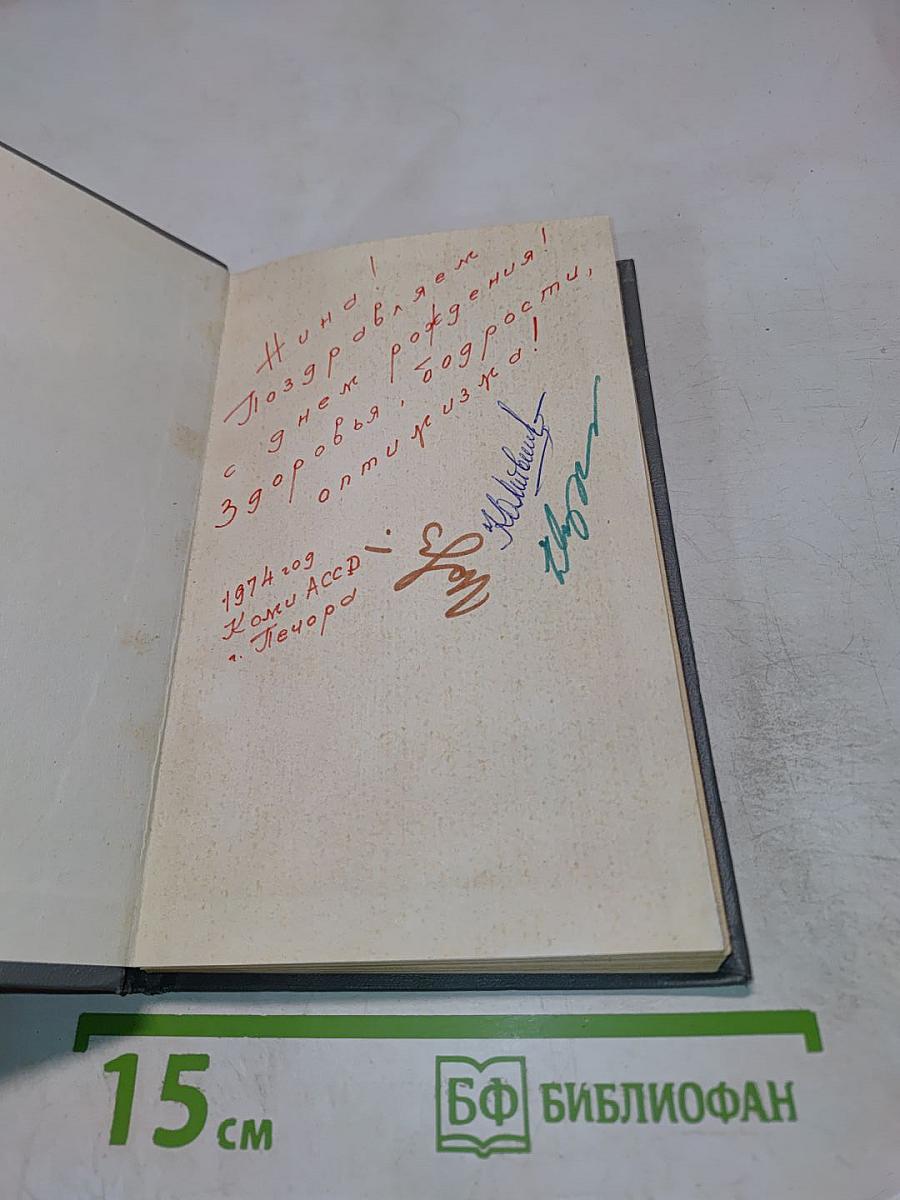 Нина!
Поздравляем
с днем рождения!
Здоровья, бодрости,
оптимизма!
1974 год
Коми АССР
г. Печора
15 см
БФ БИБЛИОФАН